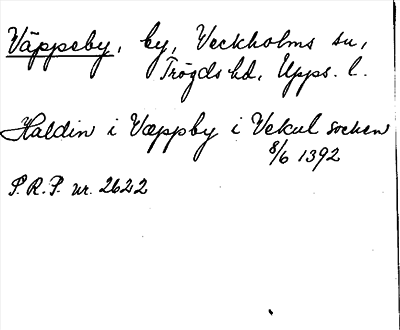 Väppeby, by, Veckholms sn,
Trögds hd, Upps. l.
Haldin i Væppby i Vekul socken
8/6 1392
S.R.P. nr. 2622